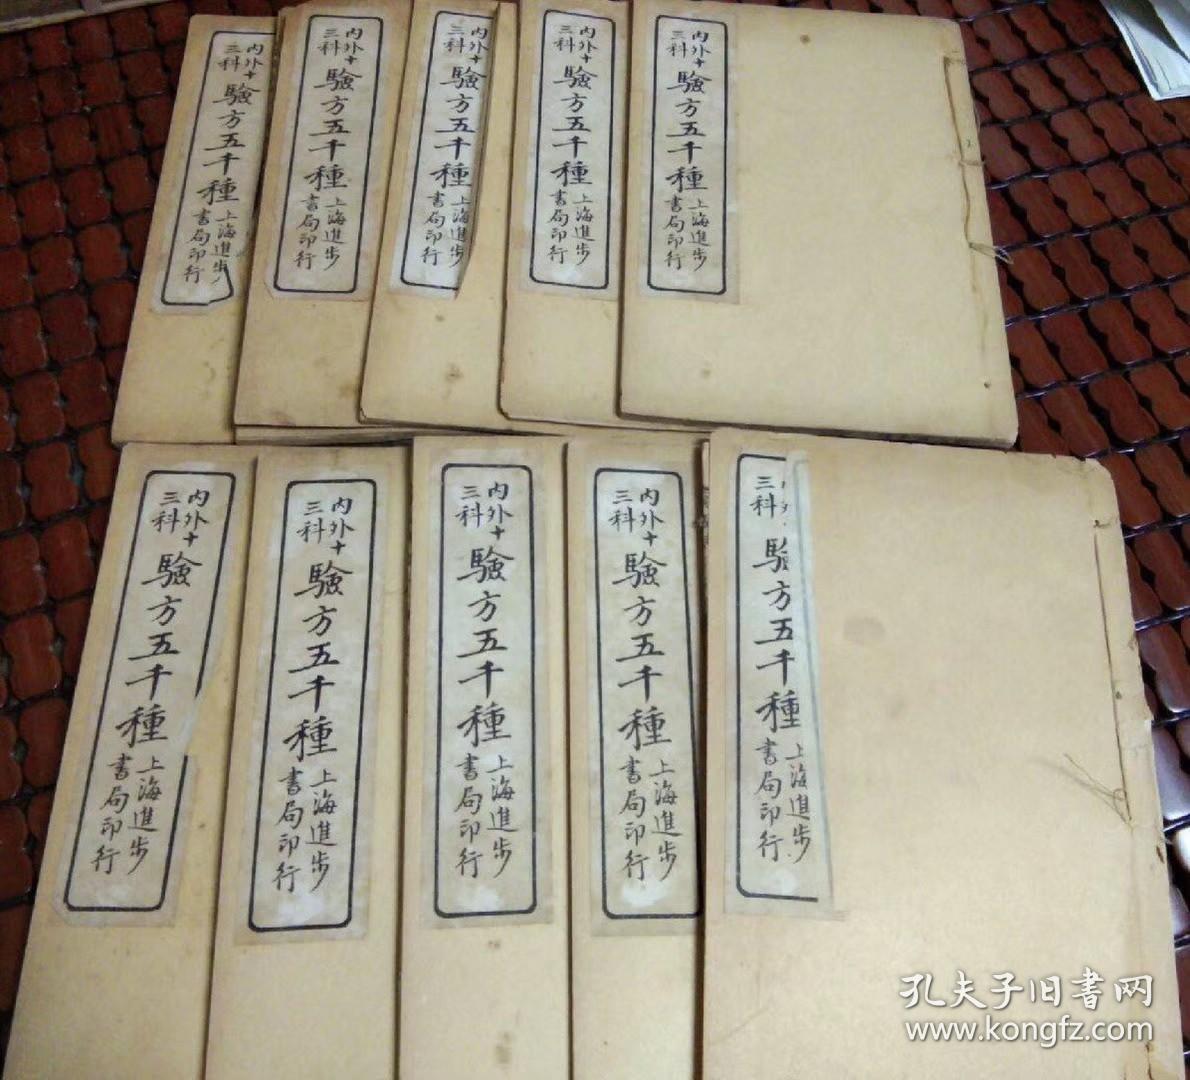 内外十三科 驗方五千種 上海進步書局印行
内外十三科 驗方五千種 上海進步書局印行
内外十三科 驗方五千種 上海進步書局印行
内外十三科 驗方五千種 上海進步書局印行
内外十三科 驗方五千種 上海進步書局印行
内外十三科 驗方五千種 上海進步書局印行
内外十三科 驗方五千種 上海進步書局印行
内外十三科 驗方五千種 上海進步書局印行
内外十三科 驗方五千種 上海進步書局印行
三科 驗方五千種 上海進步書局印行
孔夫子旧書网
www.kongfz.com